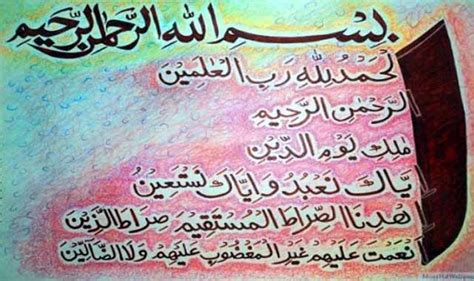 بِسْمِ اللهِ الرَّحْمٰنِ الرَّحِيْمِ
اَلْحَمْدُ لِلّٰهِ رَبِّ الْعٰلَمِيْنَ
الرَّحْمٰنِ الرَّحِيْمِ
مٰلِكِ يَوْمِ الدِّيْنِ
اِيَّاكَ نَعْبُدُ وَاِيَّاكَ نَسْتَعِيْنُ
اِهْدِنَا الصِّرَاطَ الْمُسْتَقِيْمَ صِرَاطَ الَّذِيْنَ
اَنْعَمْتَ عَلَيْهِمْ غَيْرِ الْمَغْضُوْبِ عَلَيْهِمْ وَلَا الضَّآلِّيْنَ